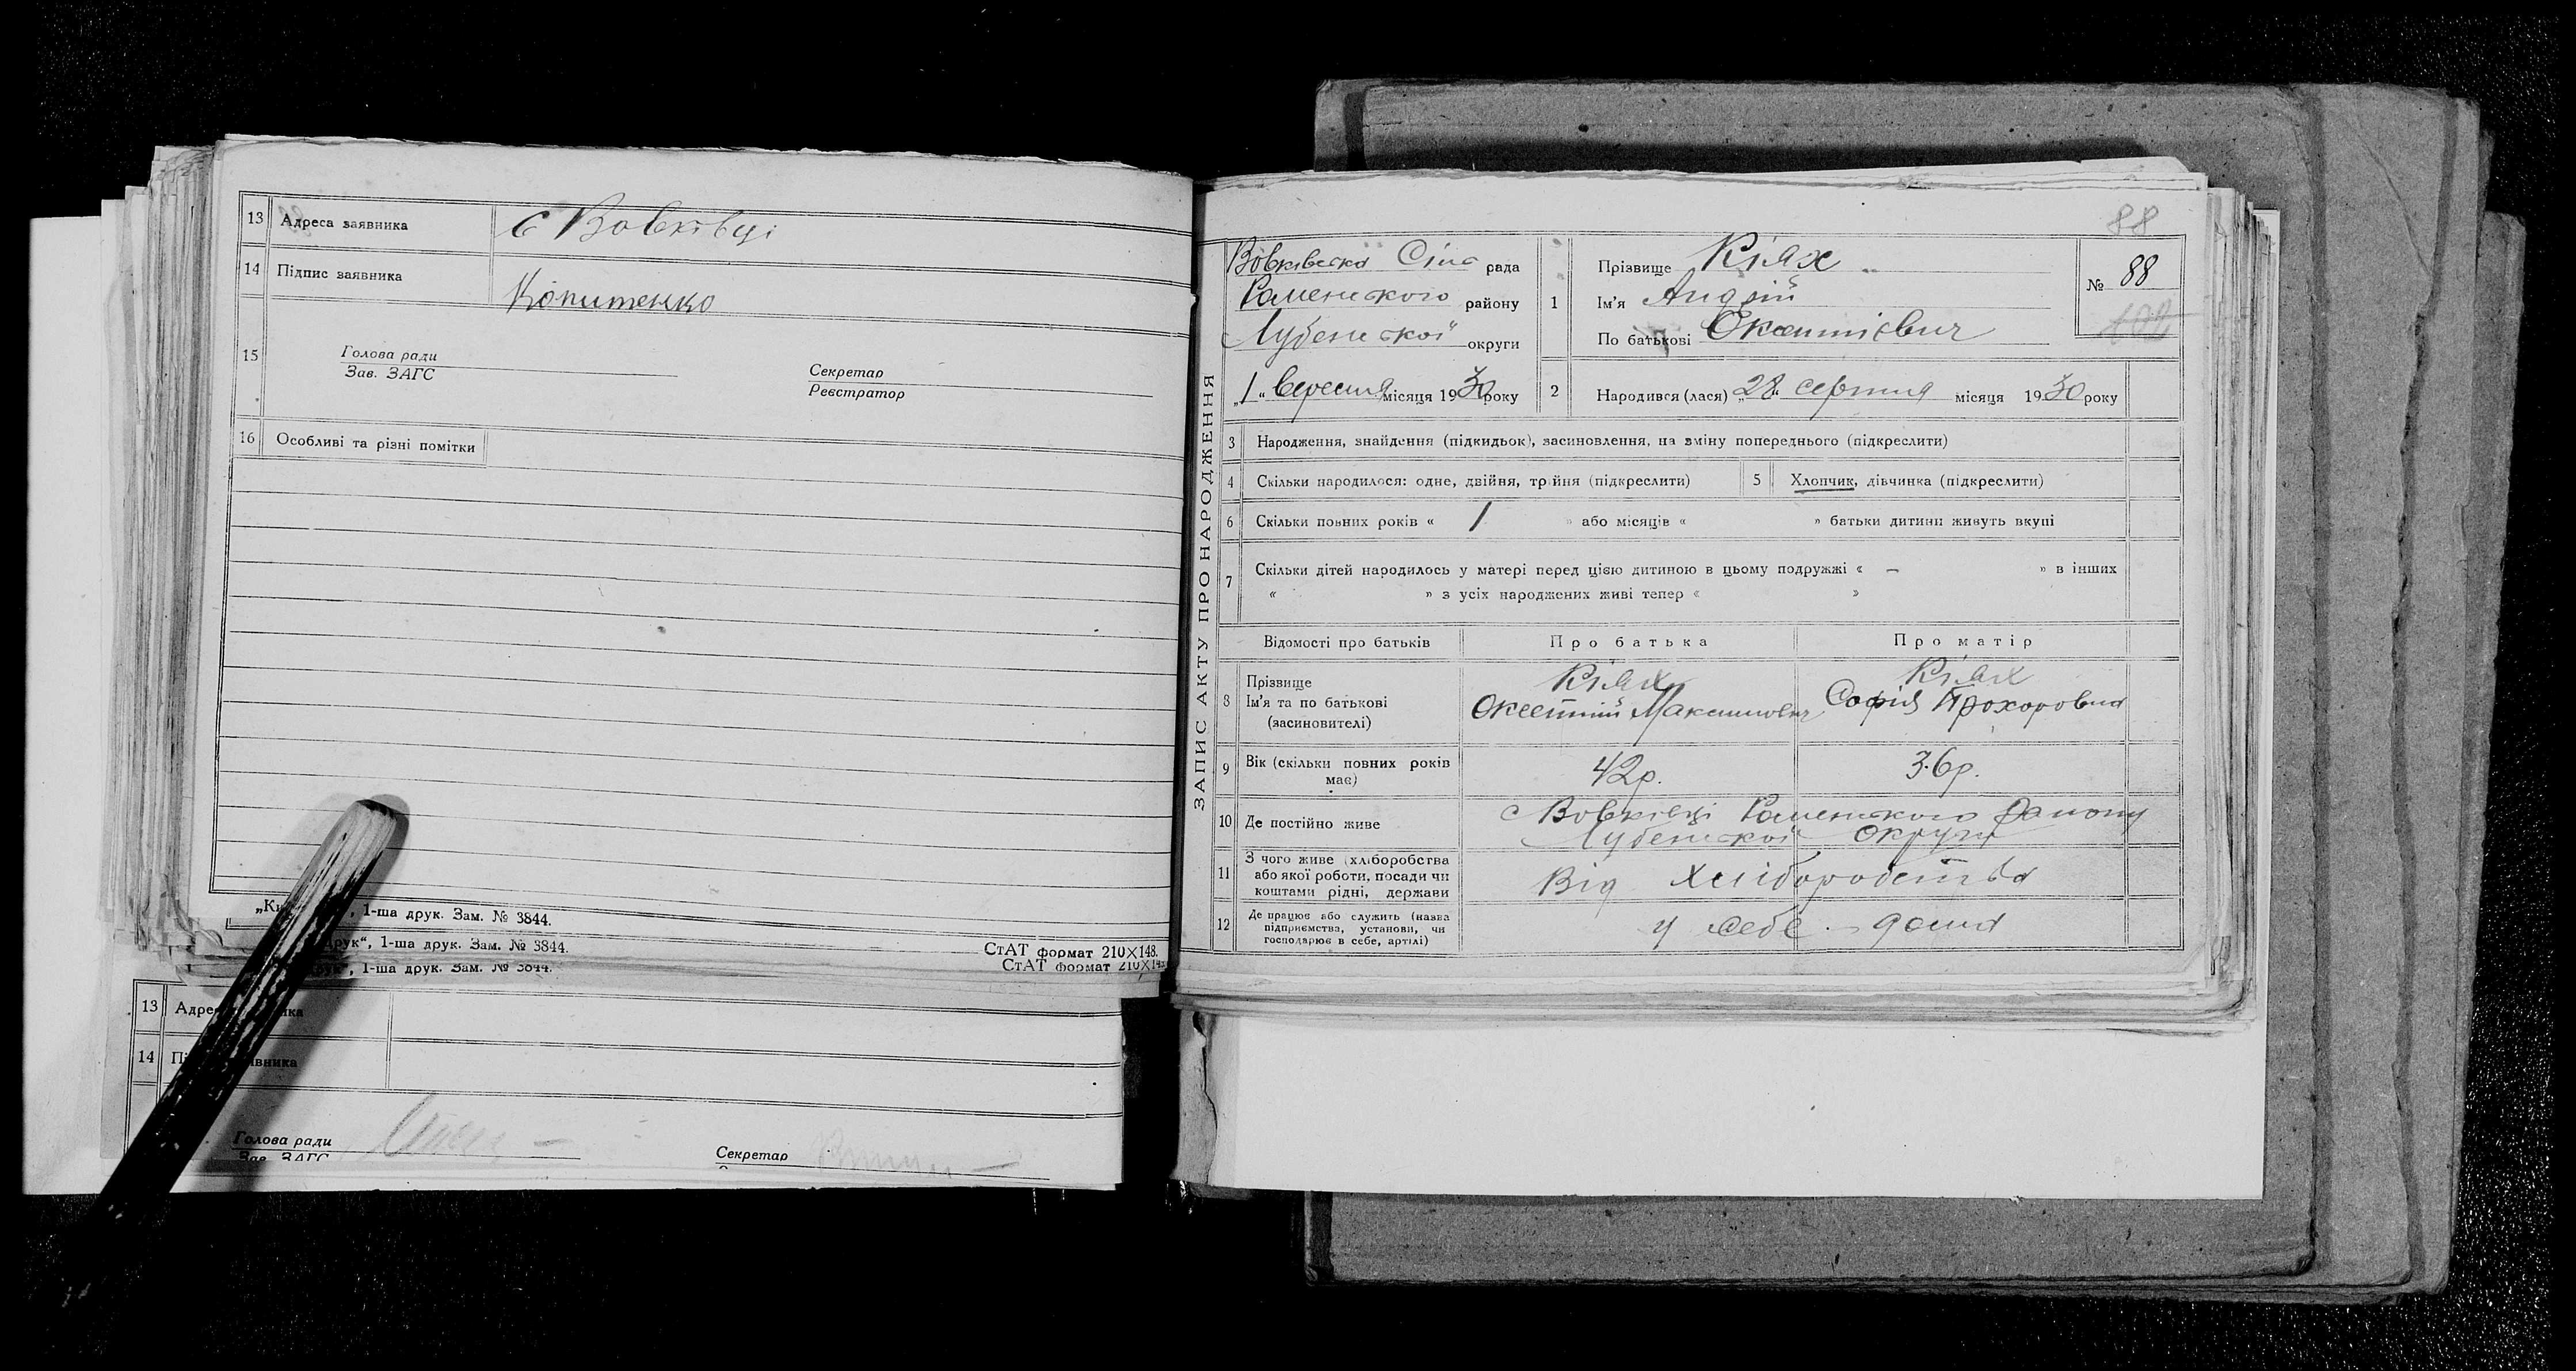 13 Адреса заявника с Вовківці
14 Підпис заявника Копитенко
15 Голова ради
Зав. ЗАГС
Секретар
Реєстратор
16 Особливі та різні помітки
1-ша друк. Зам. № 3844.
друк“, 1-ша друк. Зам. № 3844.
СтАТ формат 210×148.
1-ша друк. Зам. № 3844.
СтАТ формат 210×148
13
14
Голова ради
Зав. ЗАГС
Секретар
88
ЗАПИС АКТУ ПРО НАРОДЖЕННЯ
Вовківська Сіль рада
Роменського району
Лубенської округи
„1“ вересня місяця 1930 року
1 Прізвище Кіях
Ім'я Андрій
По батькові
№ 88
2 Народився (лася) „28“ серпня місяця 1930 року
3 Народження, знайдення (підкидьок), засиновлення, на зміну попереднього (підкреслити)
4 Скільки народилося: одне, двійня, трійня (підкреслити)
5 Хлопчик, дівчинка (підкреслити)
6 Скільки повних років « 1 » або місяців « » батьки дитини живуть вкупі
7 Скільки дітей народилось у матері перед цією дитиною в цьому подружжі « – » в інших
« » з усіх народжених живі тепер « »
Відомості про батьків Про батька Про матір
8 Прізвище Кіях Кіях
Ім'я та по батькові Максимович Софія Прохоровна
(засиновителі)
9 Вік (скільки повних років має) 42р. 36р.
10 Де постійно живе с Вовківці Роменського Району
Лубенської Округи
11 З чого живе (хліборобства
або якої роботи, посади чи
коштами рідні, держави Від хліборобства
12 Де працює або служить (назва
підприємства, установи, чи
господарює в себе, артілі) у себе дома